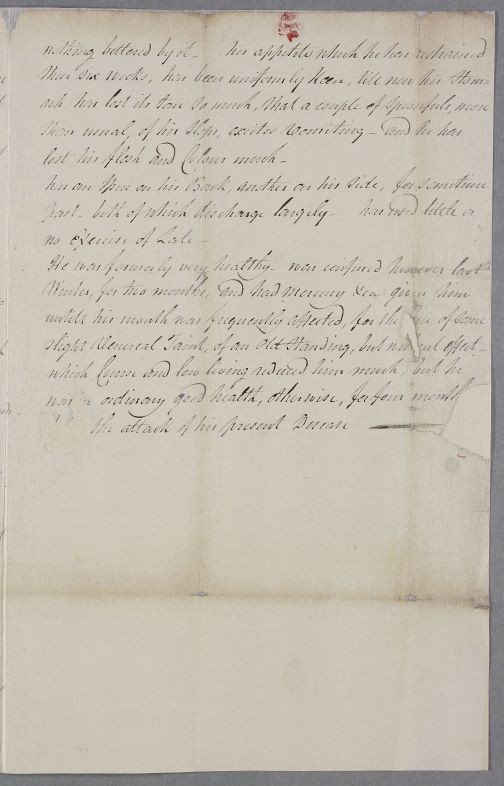 nothing bettered by it - his appetite which he has restrained
these six weeks, has been uniformly keen, till now his Stom=
ach has lost its tone so much, that a couple of spoonfuls, more
than usual, of his slops, excites vomiting - and he has
lost his flesh and Colour much -
has an Issue on his Back, another on his side, for sometime
past - both of which discharge largely - has used little or
no exercise of Late -
He was formerly very healthy - was confined however last
Winter, for two months, and had mercury &ca given him
untill his mouth was frequently affected, for the of some
slight Venereal Taint, of an Old Standing, but without effect -
which Course and low living reduced him much, but he
was in ordinary good health, otherwise, for four months
the attack of his present Disease